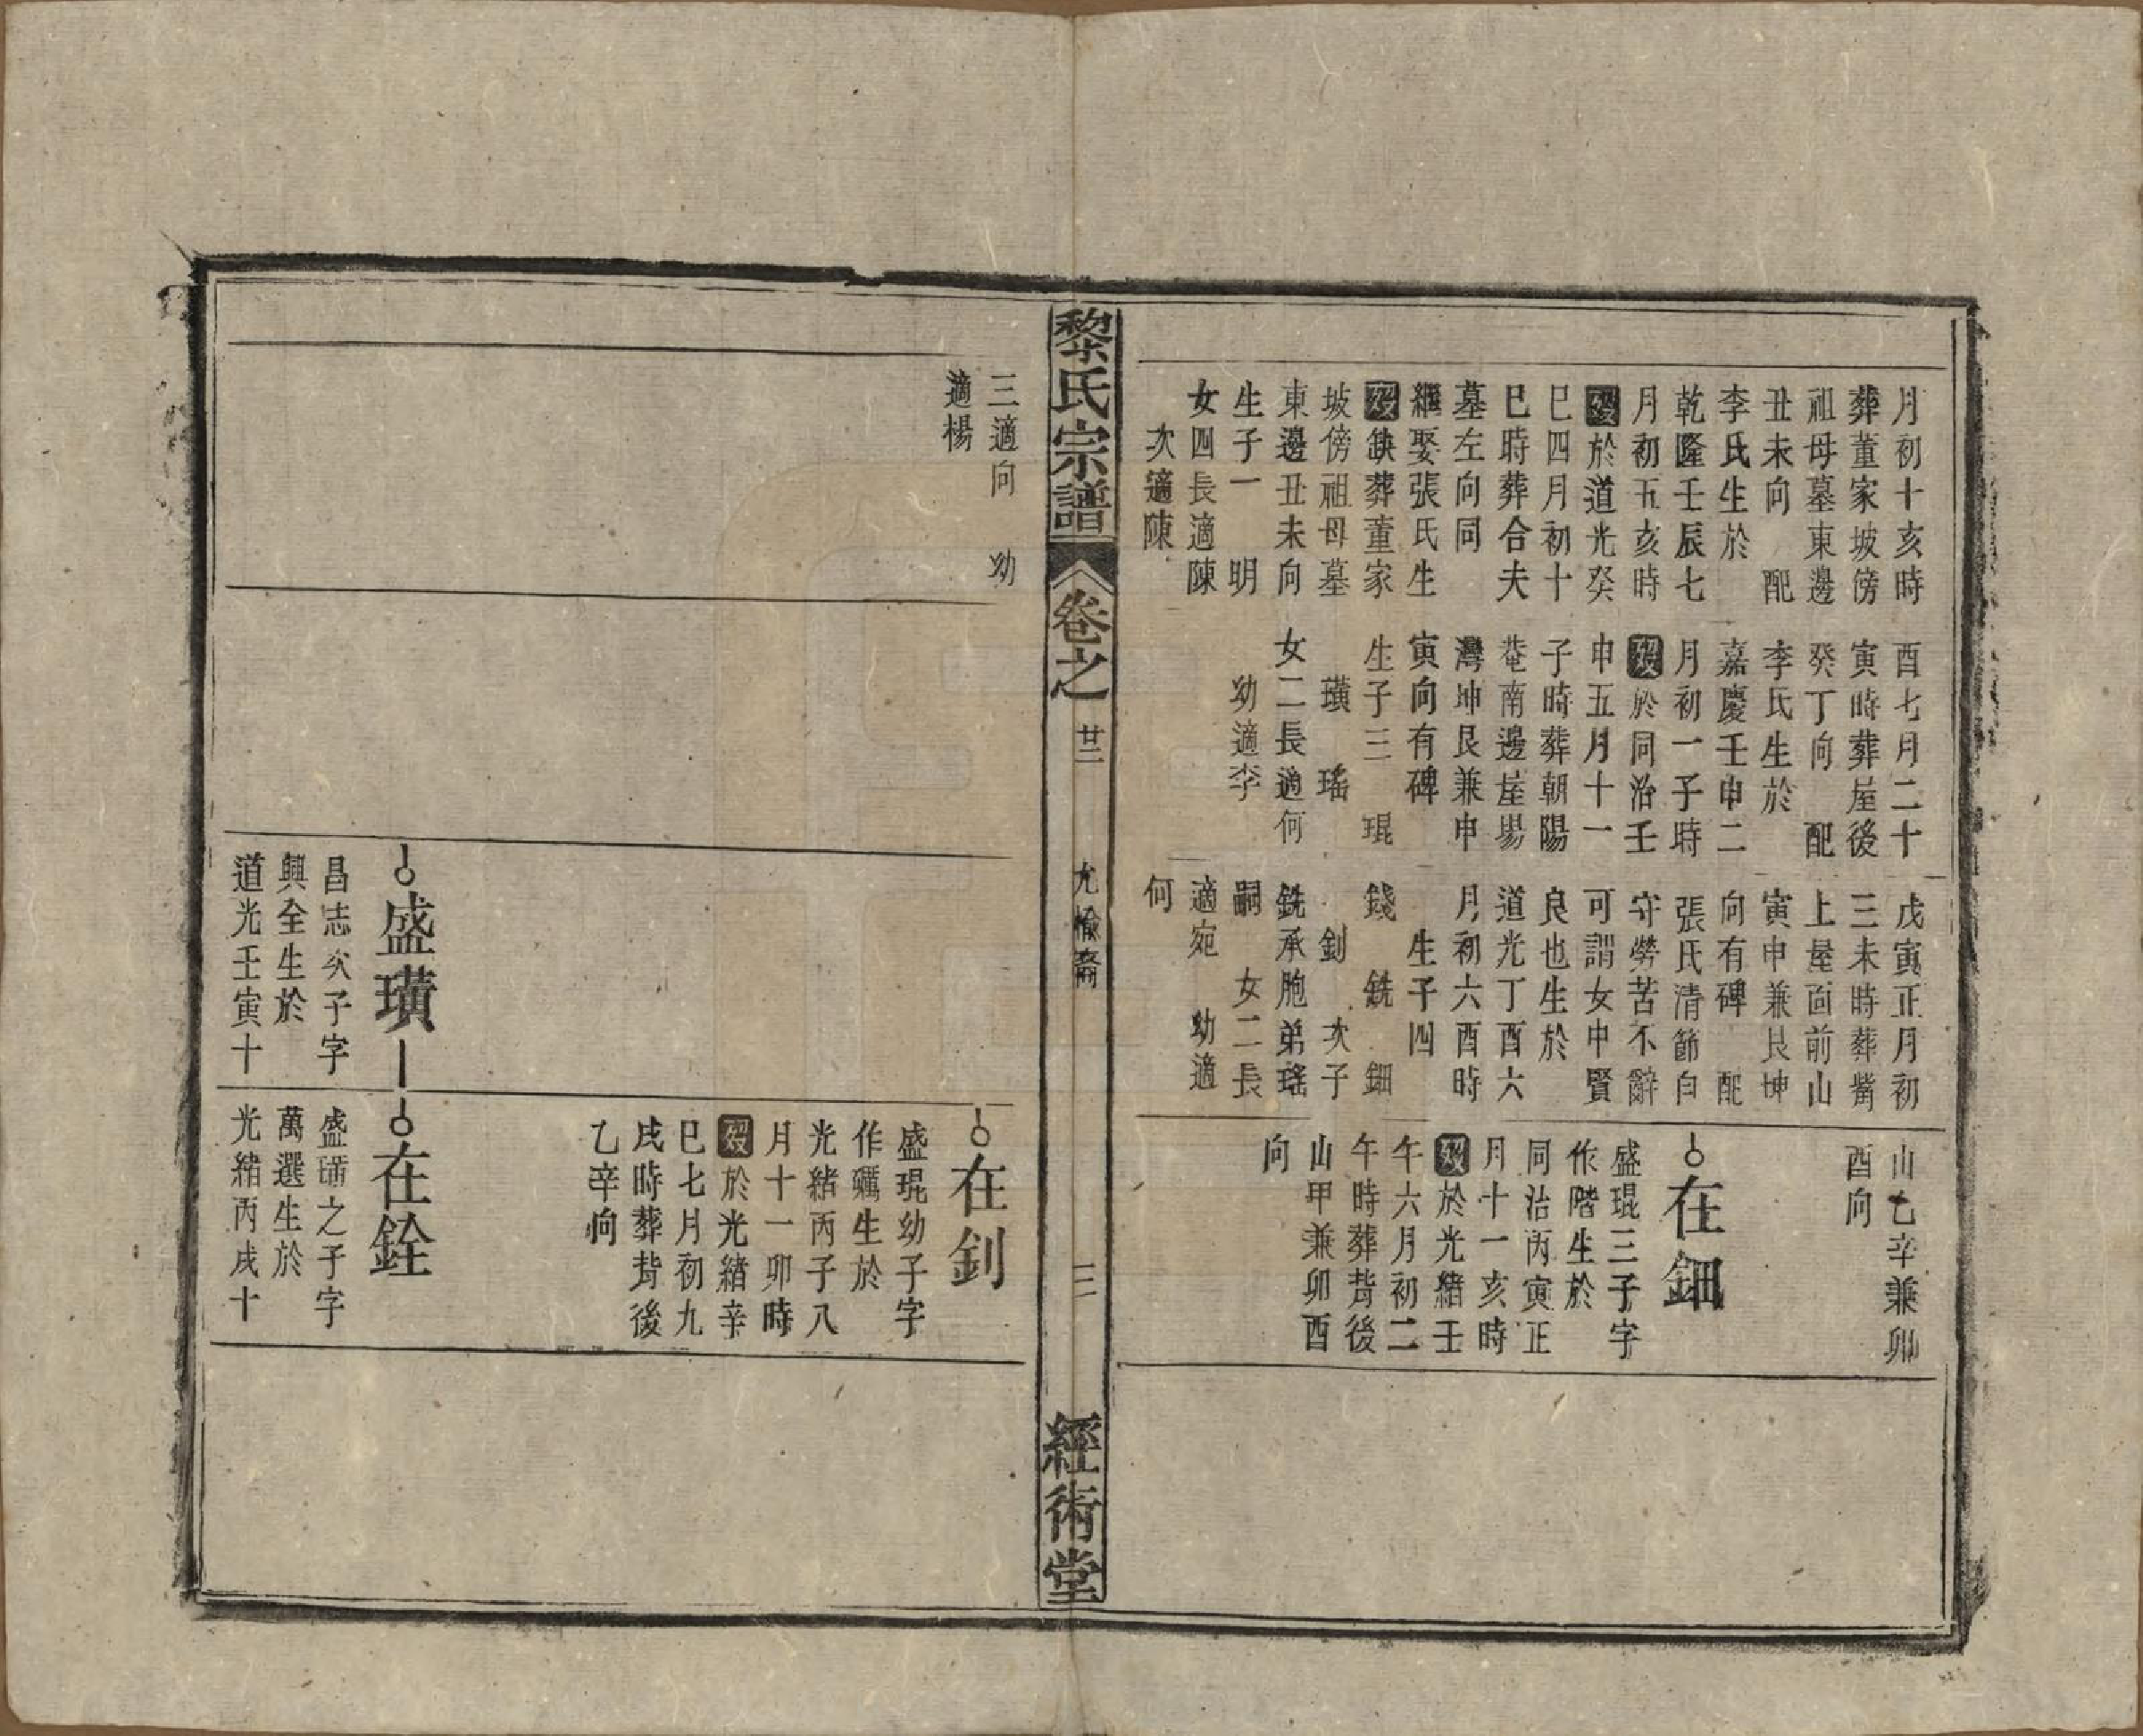 月初十亥時
葬董家坡傍
祖母墓東邊
丑未向　配
李氏生於
乾隆壬辰七
月初五亥時
歿於道光癸
巳四月初十
巳時葬合夫
墓左向同
繼娶張氏生
歿缺葬董家
坡傍祖母墓
東邊丑未向
生子一　明
女四長適陳
次適陳
酉七月二十
寅時葬屋後
癸丁向　配
李氏生於
嘉慶壬申二
月初一子時
歿於同治壬
申五月十一
子時葬朝陽
菴南邊屋場
灣坤艮兼申
寅向有碑
生子三　琨
璜　瑤
女二長適何
幼適李
戊寅正月初
三未時葬觜
上屋面前山
寅申兼艮坤
向有碑　配
張氏清節自
守勞苦不辭
可謂女中賢
良也生於
道光丁酉六
月初六酉時
生子四
錢　銑　鈿
釗　次子
銑承胞弟瑤
嗣　女二長
適宛　幼適
何
山乙辛兼卯
酉向
在鈿
盛琨三子字
作階生於
同治丙寅正
月十一亥時
歿於光緒壬
午六月初二
午時葬背後
山甲兼卯酉
向
黎氏宗譜
卷之
廿二
尤檢裔
二
經術堂
三適向　幼
適楊
在釗
盛琨幼子字
作驪生於
光緒丙子八
月十一卯時
歿於光緒辛
巳七月初九
戌時葬背後
乙辛向
盛璜
昌志次子字
興全生於
道光壬寅十
在銓
盛璜之子字
萬選生於
光緒丙戌十